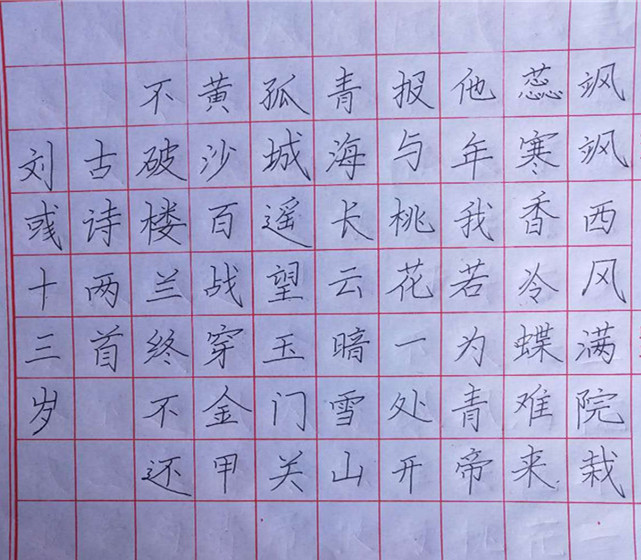 飒飒西风满院栽
蕊寒香冷蝶难来
他年我若为青帝
报与桃花一处开
青海长云暗雪山
孤城遥望玉门关
黄沙百战穿金甲
不破楼兰终不还
古诗两首
刘彧十三岁